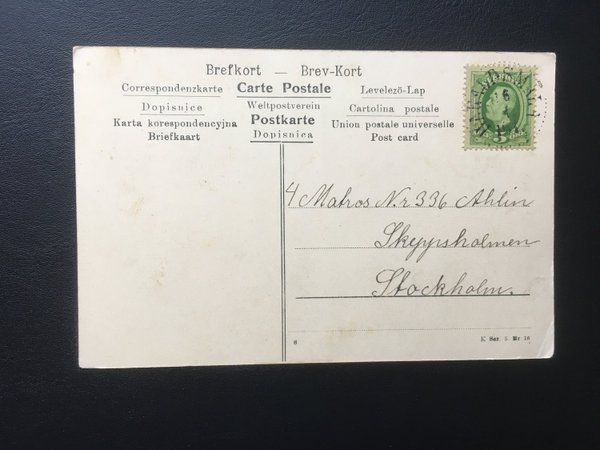 Brefkort — Brev-Kort
Correspondenzkarte Carte Postale Levelező-Lap
Dopisnice Weltpostverein Cartolina postale
Karta korespondencyjna Postkarte Union postale universelle
Briefkaart Dopisnica Post card
4 Matros Nr 336 Ahlin
Skeppsholmen
Stockholm.
8 K Ser. 5. Nr 18